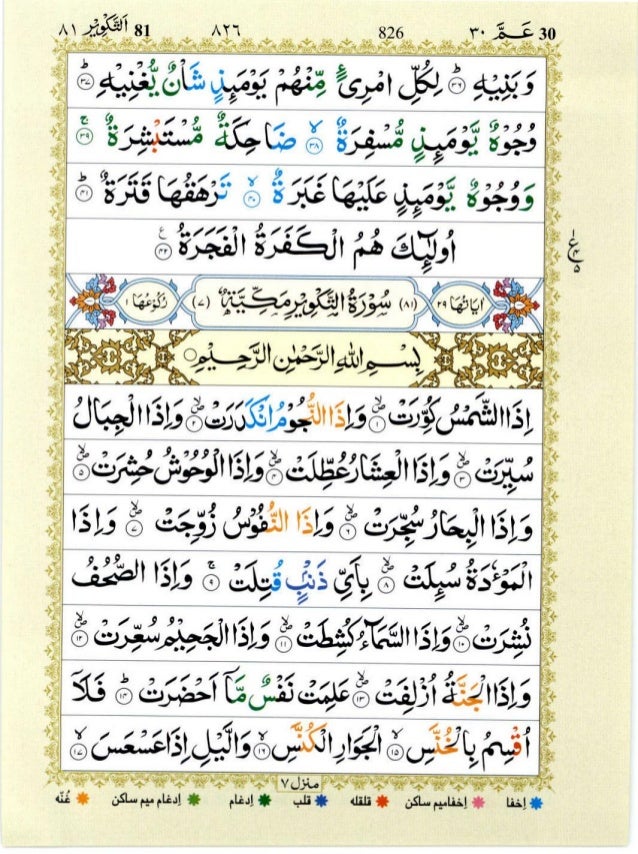 ٣٠ عَمَّ 30 826 ٨٢٦ 81 اَلتَّكْوِيْر ٨١
وَبَنِيْهِ ؕ ﴿٣٦﴾ لِكُلِّ امْرِیءٍ مِّنْهُمْ يَوْمَىِٕذٍ شَاْنٌ يُّغْنِيْهِ ؕ ﴿٣٧﴾
وُجُوْهٌ يَّوْمَىِٕذٍ مُّسْفِرَةٌ ۙ ﴿٣٨﴾ ضَاحِكَةٌ مُّسْتَبْشِرَةٌ ۚ ﴿٣٩﴾
وَوُجُوْهٌ يَّوْمَىِٕذٍ عَلَيْهَا غَبَرَةٌ ۙ ﴿٤٠﴾ تَرْهَقُهَا قَتَرَةٌ ؕ ﴿٤١﴾
اُولٰٓىِٕكَ هُمُ الْكَفَرَةُ الْفَجَرَةُ ﴿٤٢﴾
اٰيَاتُهَا ٢٩ (٨١) سُوْرَةُ التَّكْوِيْرِ مَكِّيَّةٌ (٧) رُكُوْعُهَا ١
بِسْمِ اللهِ الرَّحْمٰنِ الرَّحِيْمِ
اِذَا الشَّمْسُ كُوِّرَتْ ۙ ﴿١﴾ وَاِذَا النُّجُوْمُ انْكَدَرَتْ ۙ ﴿٢﴾ وَاِذَا الْجِبَالُ
سُيِّرَتْ ۙ ﴿٣﴾ وَاِذَا الْعِشَارُ عُطِّلَتْ ۙ ﴿٤﴾ وَاِذَا الْوُحُوْشُ حُشِرَتْ ۙ ﴿٥﴾
وَاِذَا الْبِحَارُ سُجِّرَتْ ۙ ﴿٦﴾ وَاِذَا النُّفُوْسُ زُوِّجَتْ ۙ ﴿٧﴾ وَاِذَا
الْمَوْءٗدَةُ سُىِٕلَتْ ۙ ﴿٨﴾ بِاَيِّ ذَنْۢبٍ قُتِلَتْ ۚ ﴿٩﴾ وَاِذَا الصُّحُفُ
نُشِرَتْ ۙ ﴿١٠﴾ وَاِذَا السَّمَآءُ كُشِطَتْ ۙ ﴿١١﴾ وَاِذَا الْجَحِيْمُ سُعِّرَتْ ۙ ﴿١٢﴾
وَاِذَا الْجَنَّةُ اُزْلِفَتْ ۙ ﴿١٣﴾ عَلِمَتْ نَفْسٌ مَّاۤ اَحْضَرَتْ ؕ ﴿١٤﴾ فَلَاۤ
اُقْسِمُ بِالْخُنَّسِ ۙ ﴿١٥﴾ الْجَوَارِ الْكُنَّسِ ۙ ﴿١٦﴾ وَالَّيْلِ اِذَا عَسْعَسَ ۙ ﴿١٧﴾
منزل ٧
اِخفا اِخفامیم ساکن قلقله قلب اِدغام اِدغام میم ساکن غُنّه